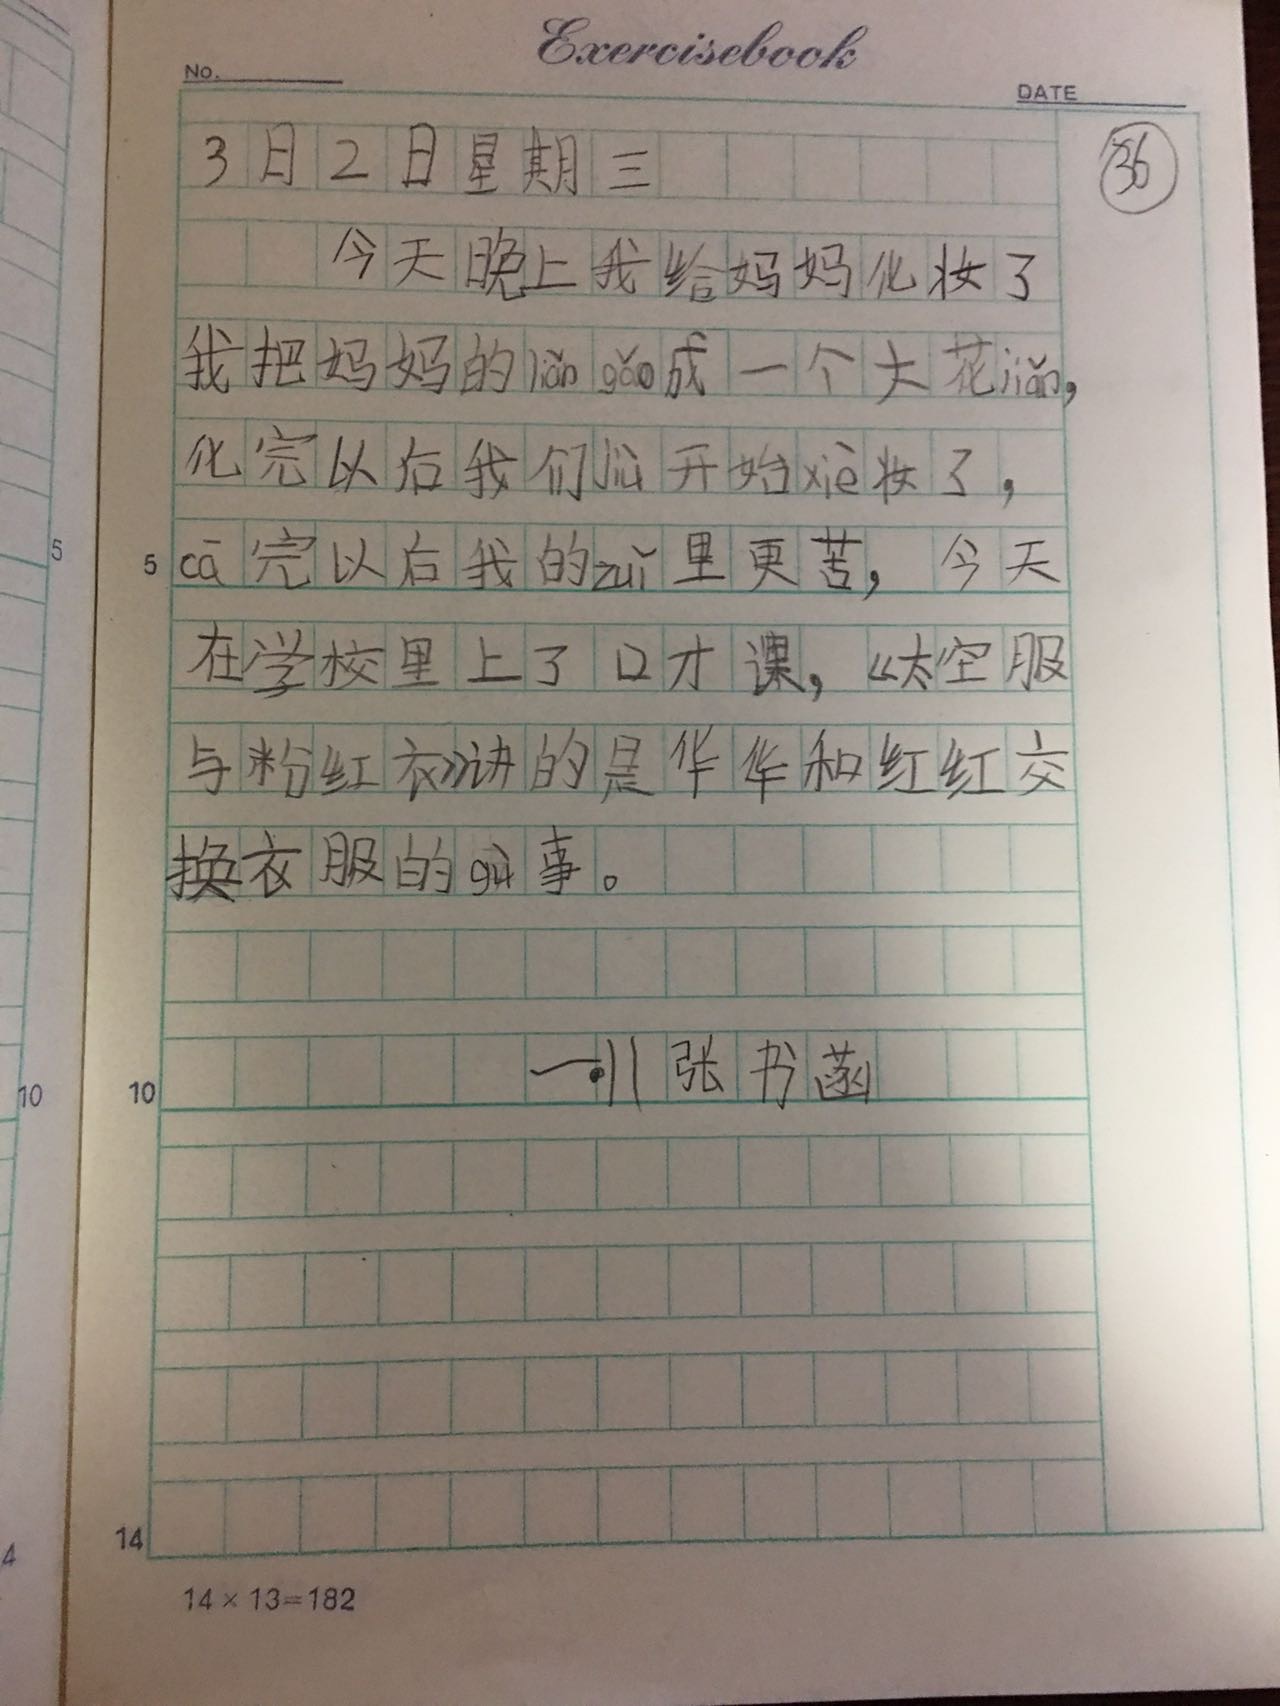 Exercisebook
No.
DATE
3日2日星期三
36
今天晚上我给妈妈化妆了
我把妈妈的liǎn gǎo成一个大花jiǎn,
化完以后我们jiù开始xiè妆了，
5 cā完以后我的zuǐ里更苦，今天
在学校里上了口才课，《太空服
与粉红衣》讲的是华华和红红交
换衣服的gù事。
10 张书菡
14
14×13=182
5
10
4